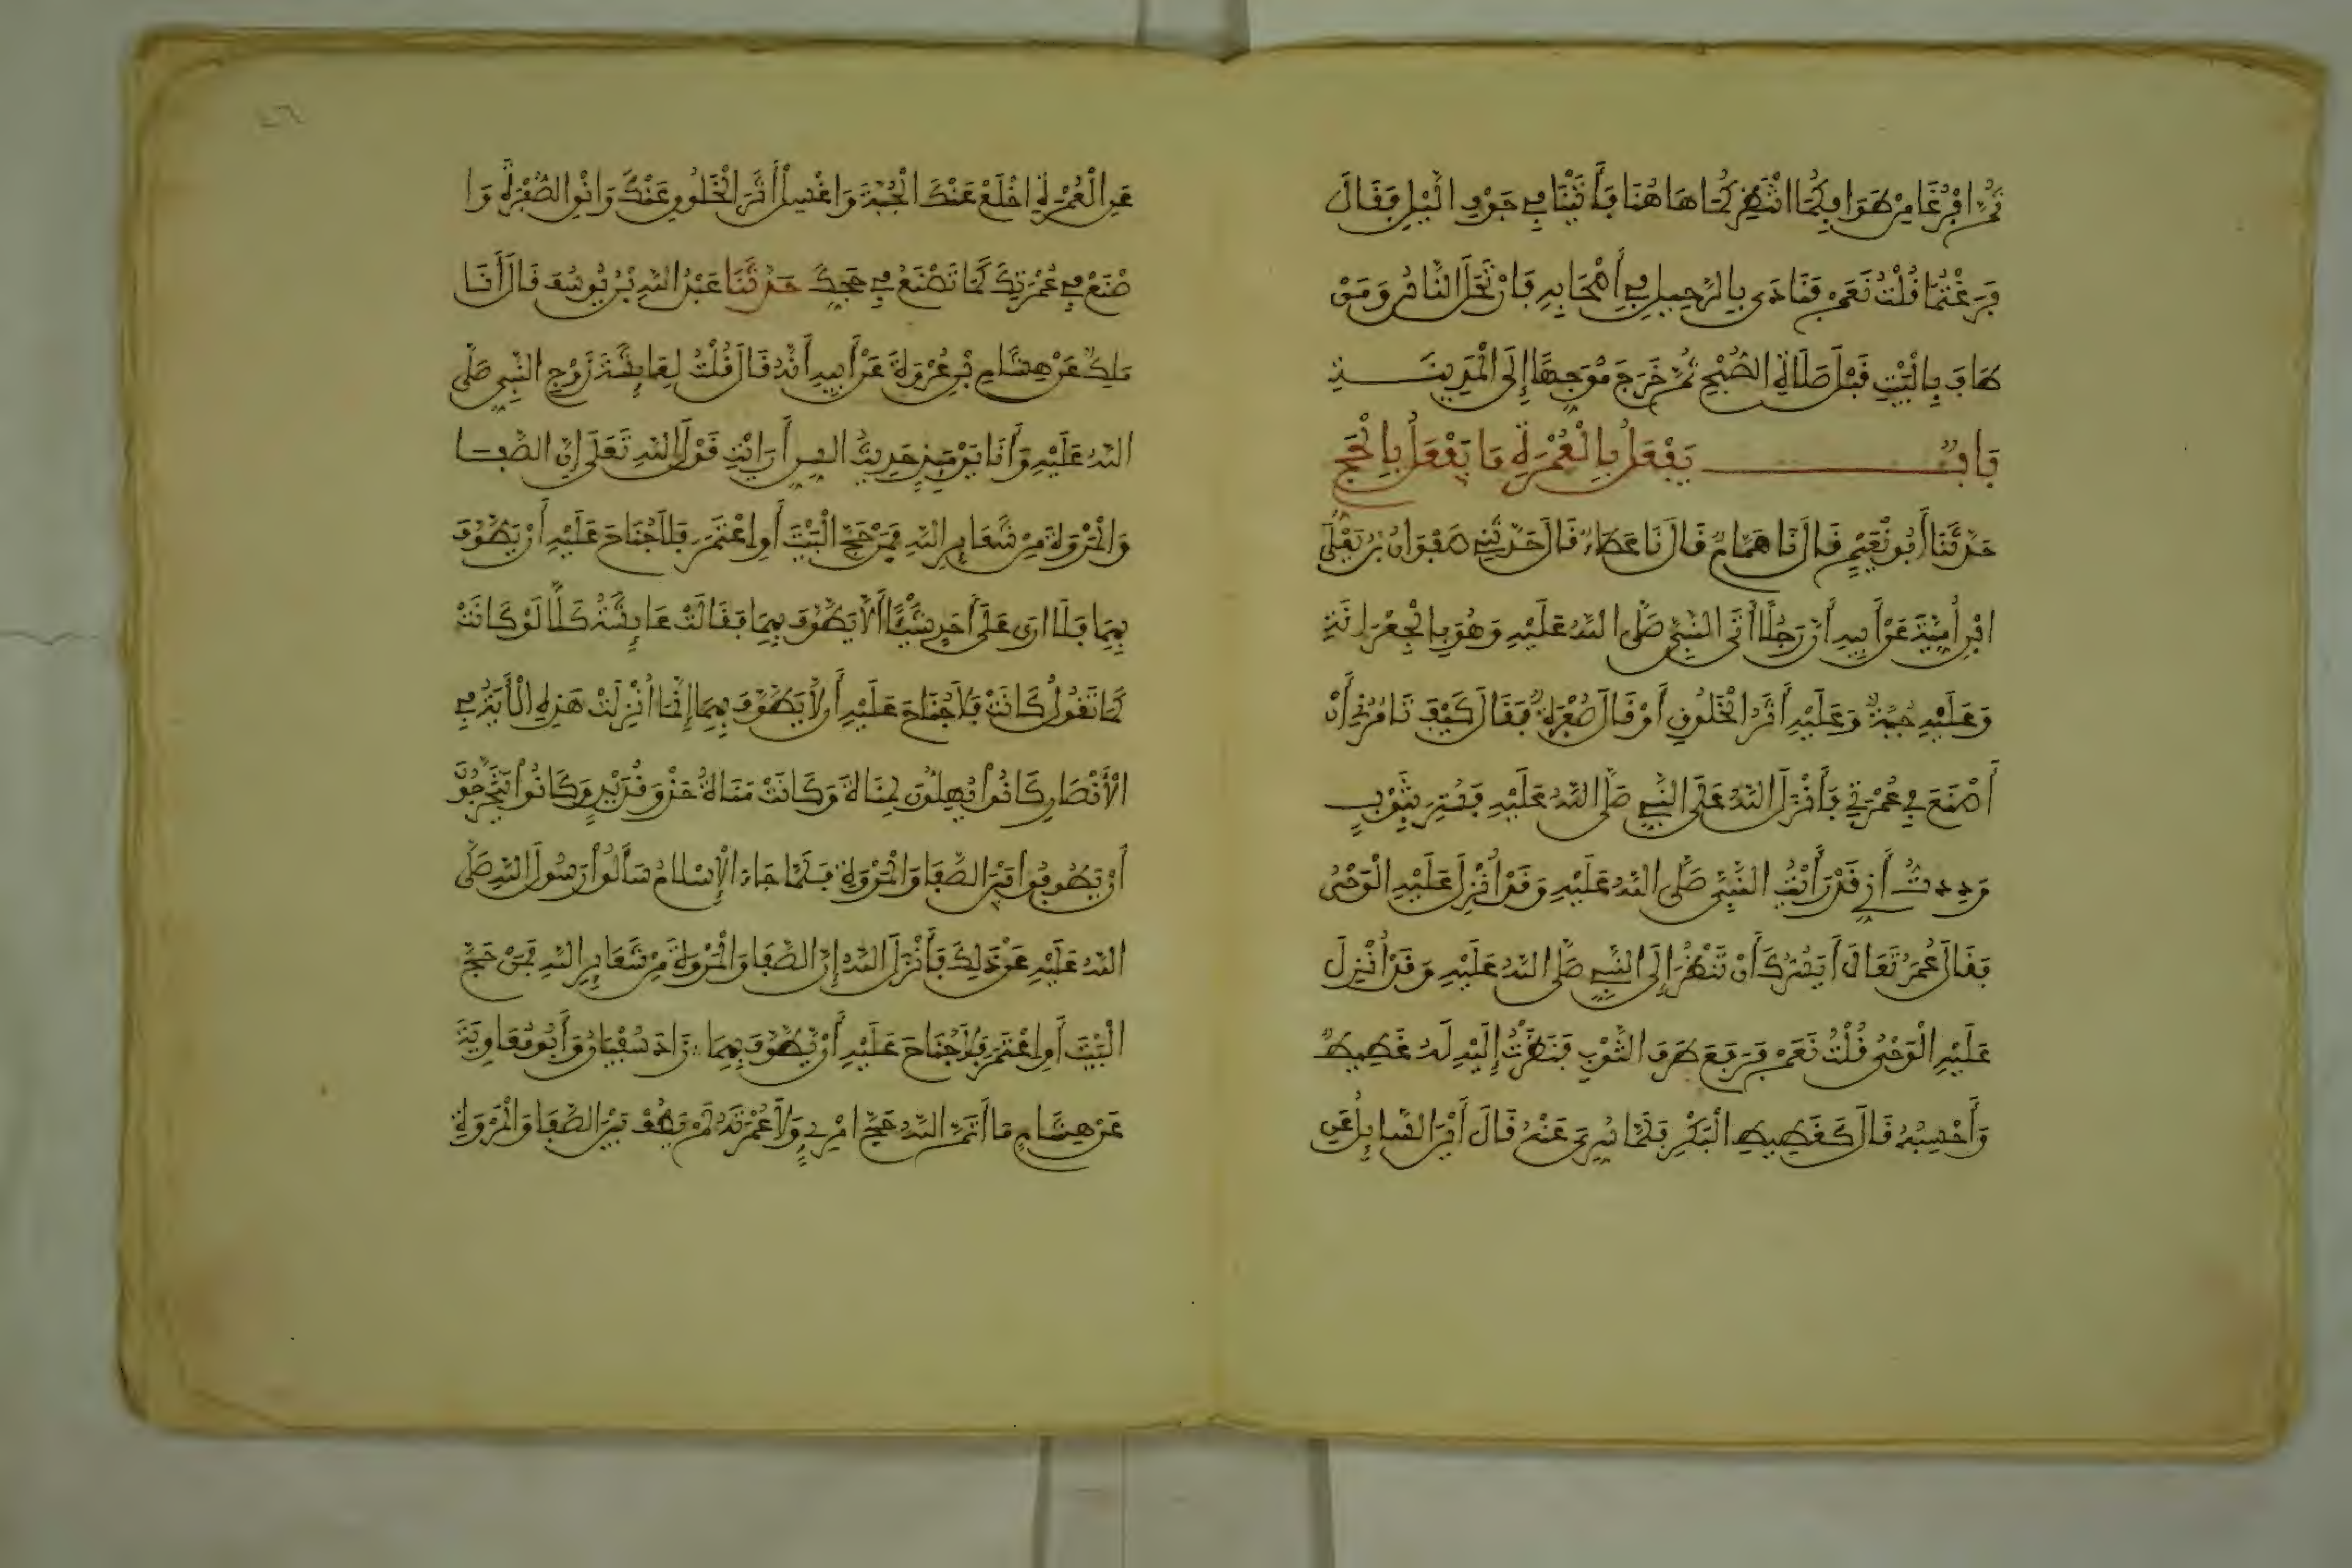 ثُمَّ افْرُغَا مِنْ طَوَافِكُمَا انْتَظِرْكُمَا هَاهُنَا فَأَتَيْنَا فِي جَوْفِ الَّيْلِ فَقَالَ
فَرَغْتُمَا قُلْتُ نَعَمْ فَنَادَى بِالرَّحِيلِ فِي أَصْحَابِهِ فَارْتَحَلَ النَّاسُ وَمَنْ
طَافَ بِالْبَيْتِ قَبْلَ صَلَاةِ الصُّبْحِ ثُمَّ خَرَجَ مُوَجِّهًا إِلَى الْمَدِينَةِ
بَابٌ يَفْعَلُ بِالْعُمْرَةِ مَا يَفْعَلُ بِالْحَجِّ
حَدَّثَنَا أَبُو نُعَيْمٍ قَالَ نَا هَمَّامٌ قَالَ نَا عَطَاءٌ قَالَ حَدَّثَنِي صَفْوَانُ بْنُ يَعْلَى
ابْنِ أُمَيَّةَ عَنْ أَبِيهِ أَنَّ رَجُلًا أَتَى النَّبِيَّ صَلَّى اللَّهُ عَلَيْهِ وَهُوَ بِالْجِعْرَانَةِ
وَعَلَيْهِ جُبَّةٌ وَعَلَيْهِ أَثَرُ الْخَلُوقِ أَوْ قَالَ صُفْرَةٌ فَقَالَ كَيْفَ تَامُرُنِي أَنْ
أَصْنَعَ فِي عُمْرَتِي فَأَنْزَلَ اللَّهُ عَلَى النَّبِيِّ صَلَّى اللَّهُ عَلَيْهِ فَسُتِرَ بِثَوْبٍ
وَوَدِدتُّ أَنِّي قَدْ رَأَيْتُ النَّبِيَّ صَلَّى اللَّهُ عَلَيْهِ وَقَدْ أُنْزِلَ عَلَيْهِ الْوَحْيُ
فَقَالَ عُمَرُ تَعَالَ أَيَسُرُّكَ أَنْ تَنْظُرَ إِلَى النَّبِيِّ صَلَّى اللَّهُ عَلَيْهِ وَقَدْ أُنْزِلَ
عَلَيْهِ الْوَحْيُ قُلْتُ نَعَمْ فَرَفَعَ طَرَفَ الثَّوْبِ فَنَظَرْتُ إِلَيْهِ لَهُ غَطِيطٌ
وَأَحْسِبُهُ قَالَ كَغَطِيطِ الْبَكْرِ فَلَمَّا سُرِّيَ عَنْهُ قَالَ أَيْنَ السَّائِلُ عَنِ
عَنِ الْعُمْرَةِ اخْلَعْ عَنْكَ الْجُبَّةَ وَاغْسِلْ أَثَرَ الْخَلُوقِ عَنْكَ وَانْقِ الصُّفْرَةَ وَا
صْنَعْ فِي عُمْرَتِكَ كَمَا تَصْنَعُ فِي حَجِّكَ حَدَّثَنَا عَبْدُ اللَّهِ بْنُ يُوسُفَ قَالَ أَنَا
مَلِكٌ عَنْ هِشَامِ بْنِ عُرْوَةَ عَنْ أَبِيهِ أَنَّهُ قَالَ قُلْتُ لِعَائِشَةَ زَوْجِ النَّبِيِّ صَلَّى
اللَّهُ عَلَيْهِ وَأَنَا يَوْمَئِذٍ حَدِيثُ السِّنِّ أَرَايْتِ قَوْلَ اللَّهِ تَعَلَى إِنَّ الصَّفَا
وَالْمَرْوَةَ مِنْ شَعَائِرِ اللَّهِ فَمَنْ حَجَّ الْبَيْتَ أَوِ اعْتَمَرَ فَلَا جُنَاحَ عَلَيْهِ أَنْ يَطَّوَّفَ
بِهِمَا فَلَا ارَى عَلَى أَحَدٍ شَيْئًا أَلَّا يَطَّوَّفَ بِهِمَا فَقَالَتْ عَائِشَةُ كَلَّا لَوْ كَانَتْ
كَمَا تَقُولُ كَانَتْ فَلَا جُنَاحَ عَلَيْهِ أَن لَّا يَطَّوَّفَ بِهِمَا إِنَّمَا أُنْزِلَتْ هَذِهِ الْأَيَةُ فِي
الْأَنْصَارِ كَانُوا يُهِلُّونَ لِمَنَاةَ وَكَانَتْ مَنَاةُ حَذْوَ قُدَيْدٍ وَكَانُوا يَتَحَرَّجُونَ
أَنْ يَطُوفُوا بَيْنَ الصَّفَا وَالْمَرْوَةِ فَلَمَّا جَاءَ الْإِسْلَامُ سَأَلُوا رَسُولَ اللَّهِ صَلَّى
اللَّهُ عَلَيْهِ عَنْ ذَلِكَ فَأَنْزَلَ اللَّهُ إِنَّ الصَّفَا وَالْمَرْوَةَ مِنْ شَعَائِرِ اللَّهِ فَمَنْ حَجَّ
الْبَيْتَ أَوِ اعْتَمَرَ فَلَا جُنَاحَ عَلَيْهِ أَنْ يَطَّوَّفَ بِهِمَا زَادَ سُفْيَانُ وَأَبُو مُعَاوِيَةَ
عَنْ هِشَامٍ مَا أَتَمَّ اللَّهُ حَجَّ امْرِئٍ وَلَا عُمْرَتَهُ لَمْ يَطُفْ بَيْنَ الصَّفَا وَالْمَرْوَةِ